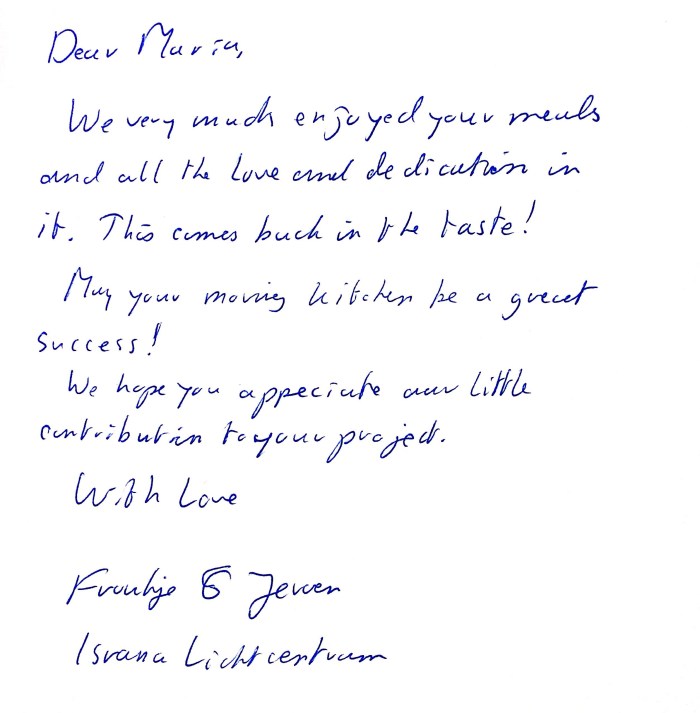 Dear Maria,
We very much enjoyed your meals
and all the love and dedication in
it. This comes back in the taste!
May your moving kitchen be a great
success!
We hope you appeciate our little
contribution to your project.
With Love
Froukje & Jeroen
Isvana Lichtcentrum